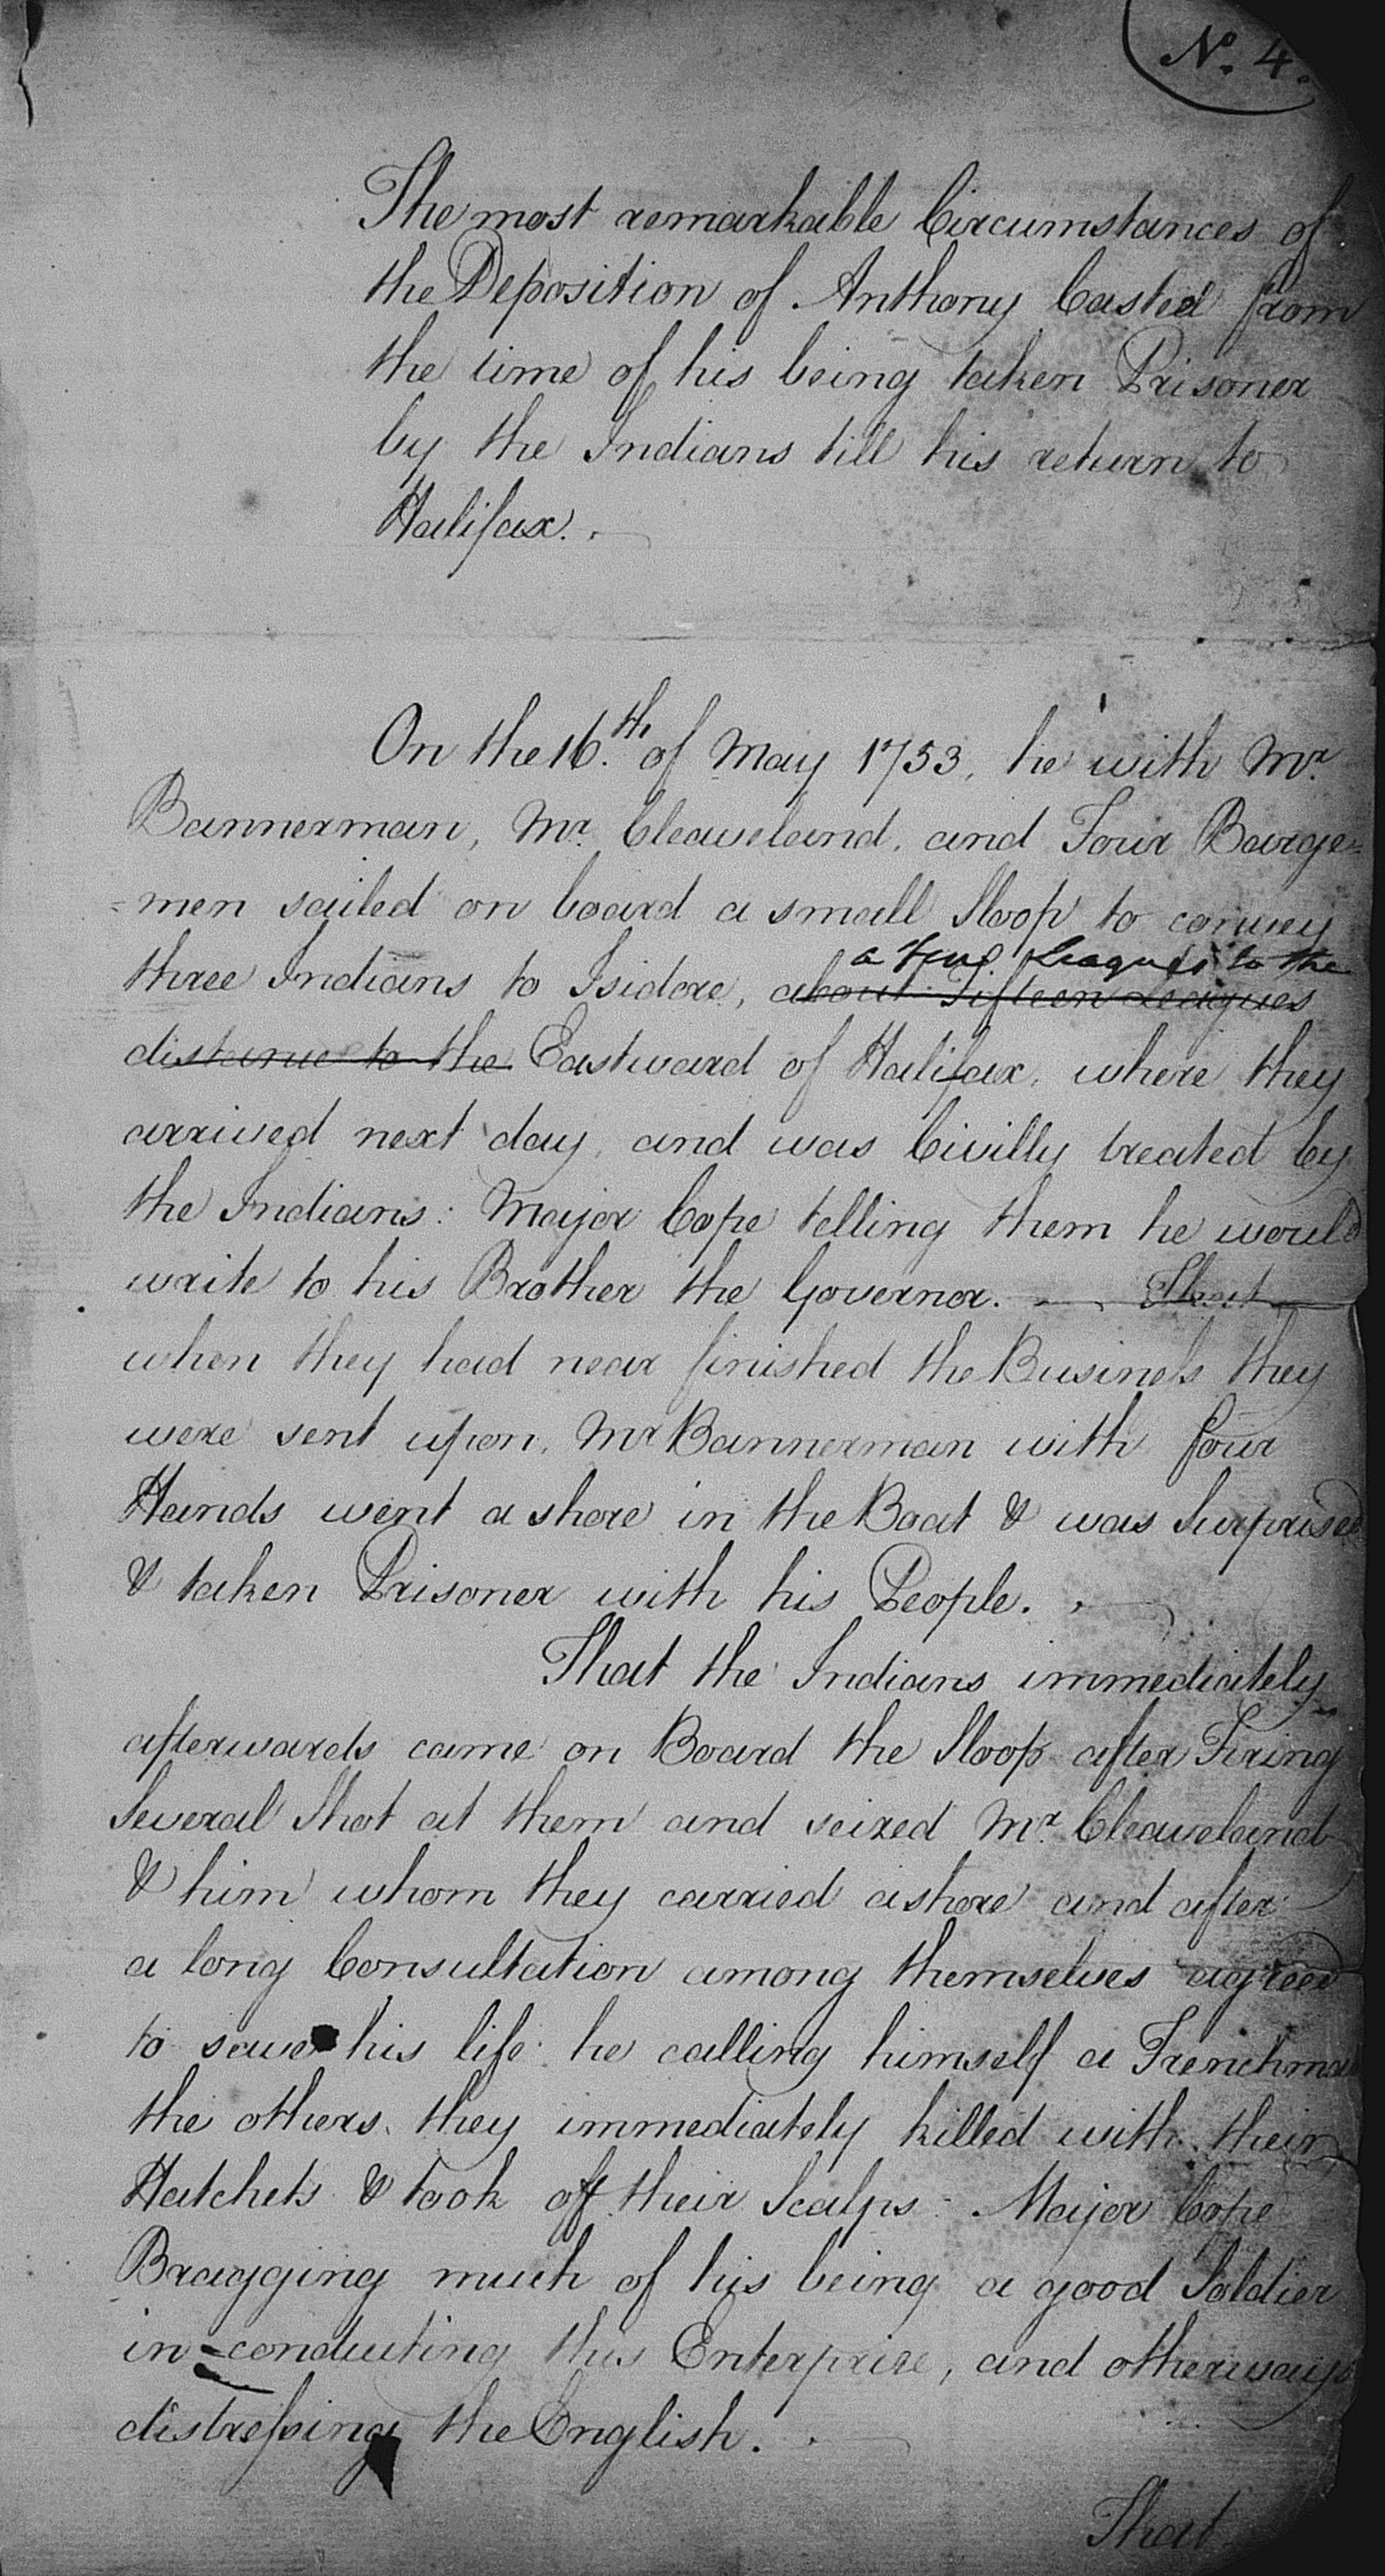 No. 4.
The most remarkable Circumstances of
the Deposition of Anthony Casteel from
the time of his being taken Prisoner
by the Indians till his return to
Halifax.
On the 16.th of May 1753, he with Mr.
Bannerman, Mr. Cleaveland, and Four Barge=
=men sailed on board a small Sloop to convey
a few Leagues to the
three Indians to Isidore, about Fifteen Leagues
distance to the Eastward of Halifax, where they
arrived next day, and was Civilly treated by
the Indians: Major Cope telling them he would
write to his Brother the Governor. — That
when they had near finished the Business they
were sent upon, Mr Bannerman with four
Hands went a shore in the Boat & was Surprised
& taken Prisoner with his People.
That the Indians immediately
afterwards came on Board the Sloop after Firing
Several Shot at them and seized Mr. Cleaveland
& him whom they carried ashore and after
a long Consultation among themselves agreed
to save his life he calling himself a Frenchman
the others they immediately killed with their
Hatchets & took off their Scalps - Major Cope
Bragging much of his being a good Soldier
in conducting this Enterprize, and otherways
distressing the English.
That